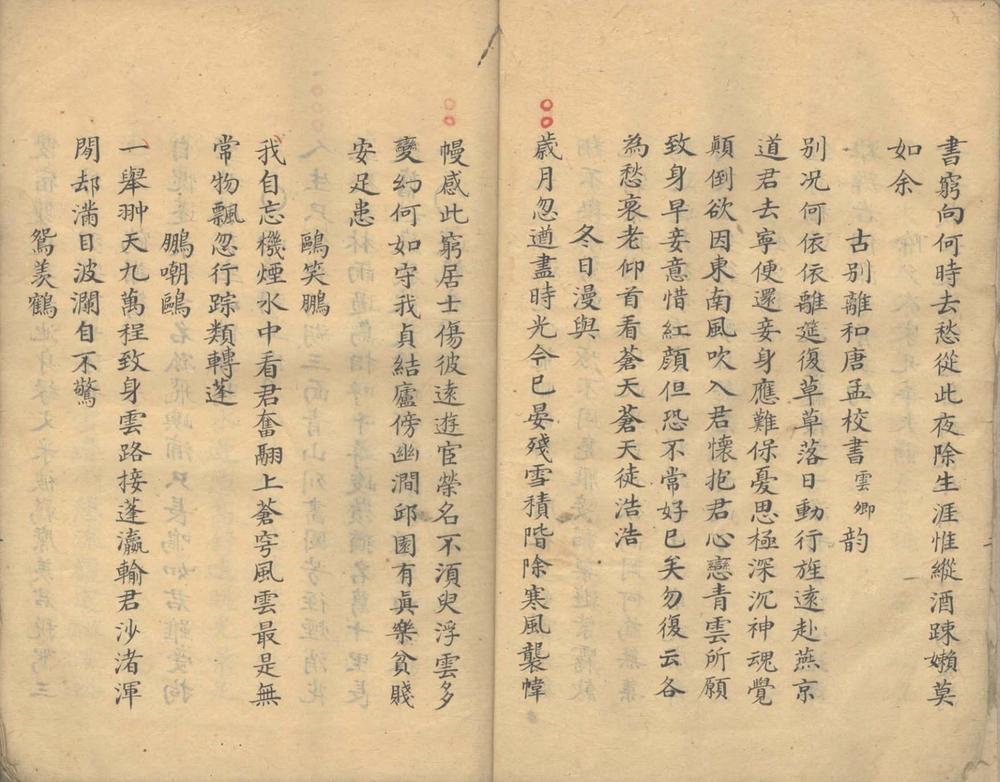 書窮向何時去愁從此夜除生涯惟縱酒踈嬾莫
如余
古別離和唐孟校書雲卿韵
別况何依依離筵復草草落日動行旌遠赴燕京
道君去寧便還妾身應難保憂思極深沉神魂覺
顛倒欲因東南風吹入君懷抱君心戀青雲所願
致身早妾意惜紅顔但恐不常好已矣勿復云各
為愁衰老仰首看蒼天蒼天徒浩浩
冬日漫與
歲月忽遒盡時光今已晏殘雪積階除寒風襲幃
幔感此窮居士傷彼遠遊宦榮名不湏臾浮雲多
變幻何如守我貞結廬傍幽澗邱園有眞樂貧賤
安足患
鷗笑鵬
我自忘機煙水中看君奮翮上蒼穹風雲最是無
常物飄忽行踪類轉蓬
鵬嘲鷗
一舉翀天九萬程致身雲路接蓬瀛輸君沙渚渾
閒却滿目波瀾自不驚
鴛羡鶴